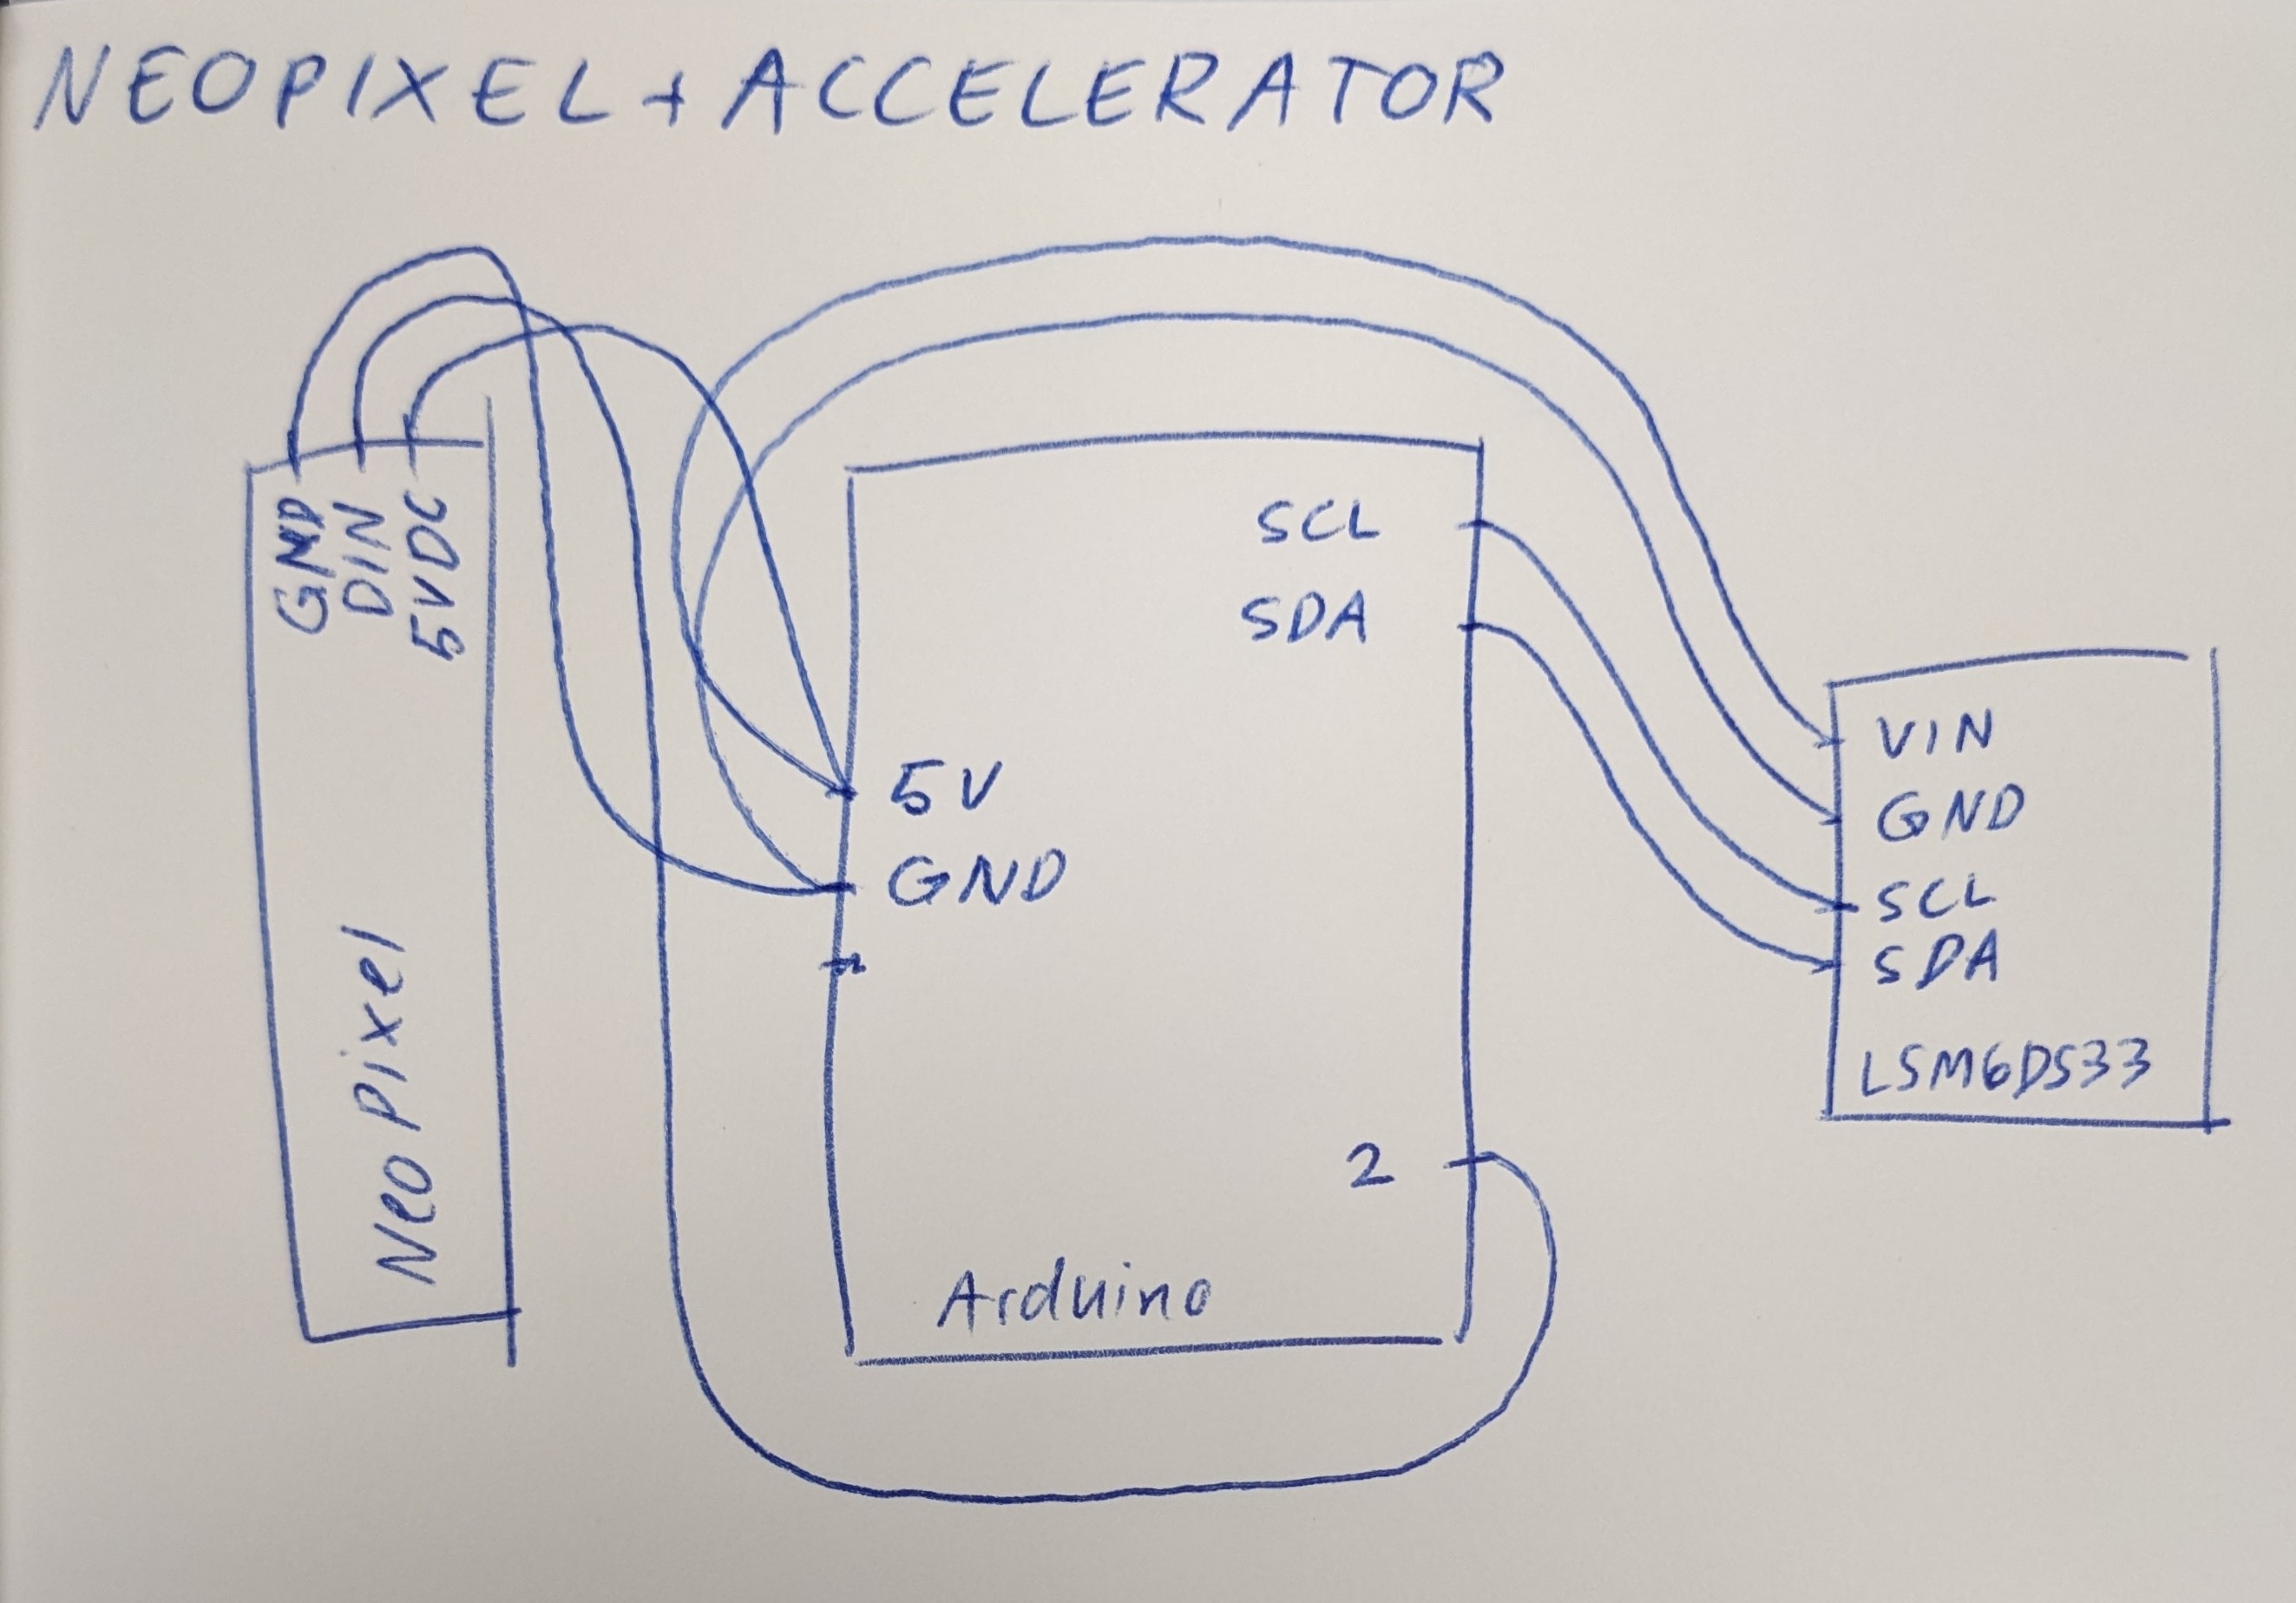 NEOPIXEL + ACCELERATOR
GND
DIN
5VDC
NeoPixel
SCL
SDA
5V
GND
2
Arduino
VIN
GND
SCL
SDA
LSM6DS33